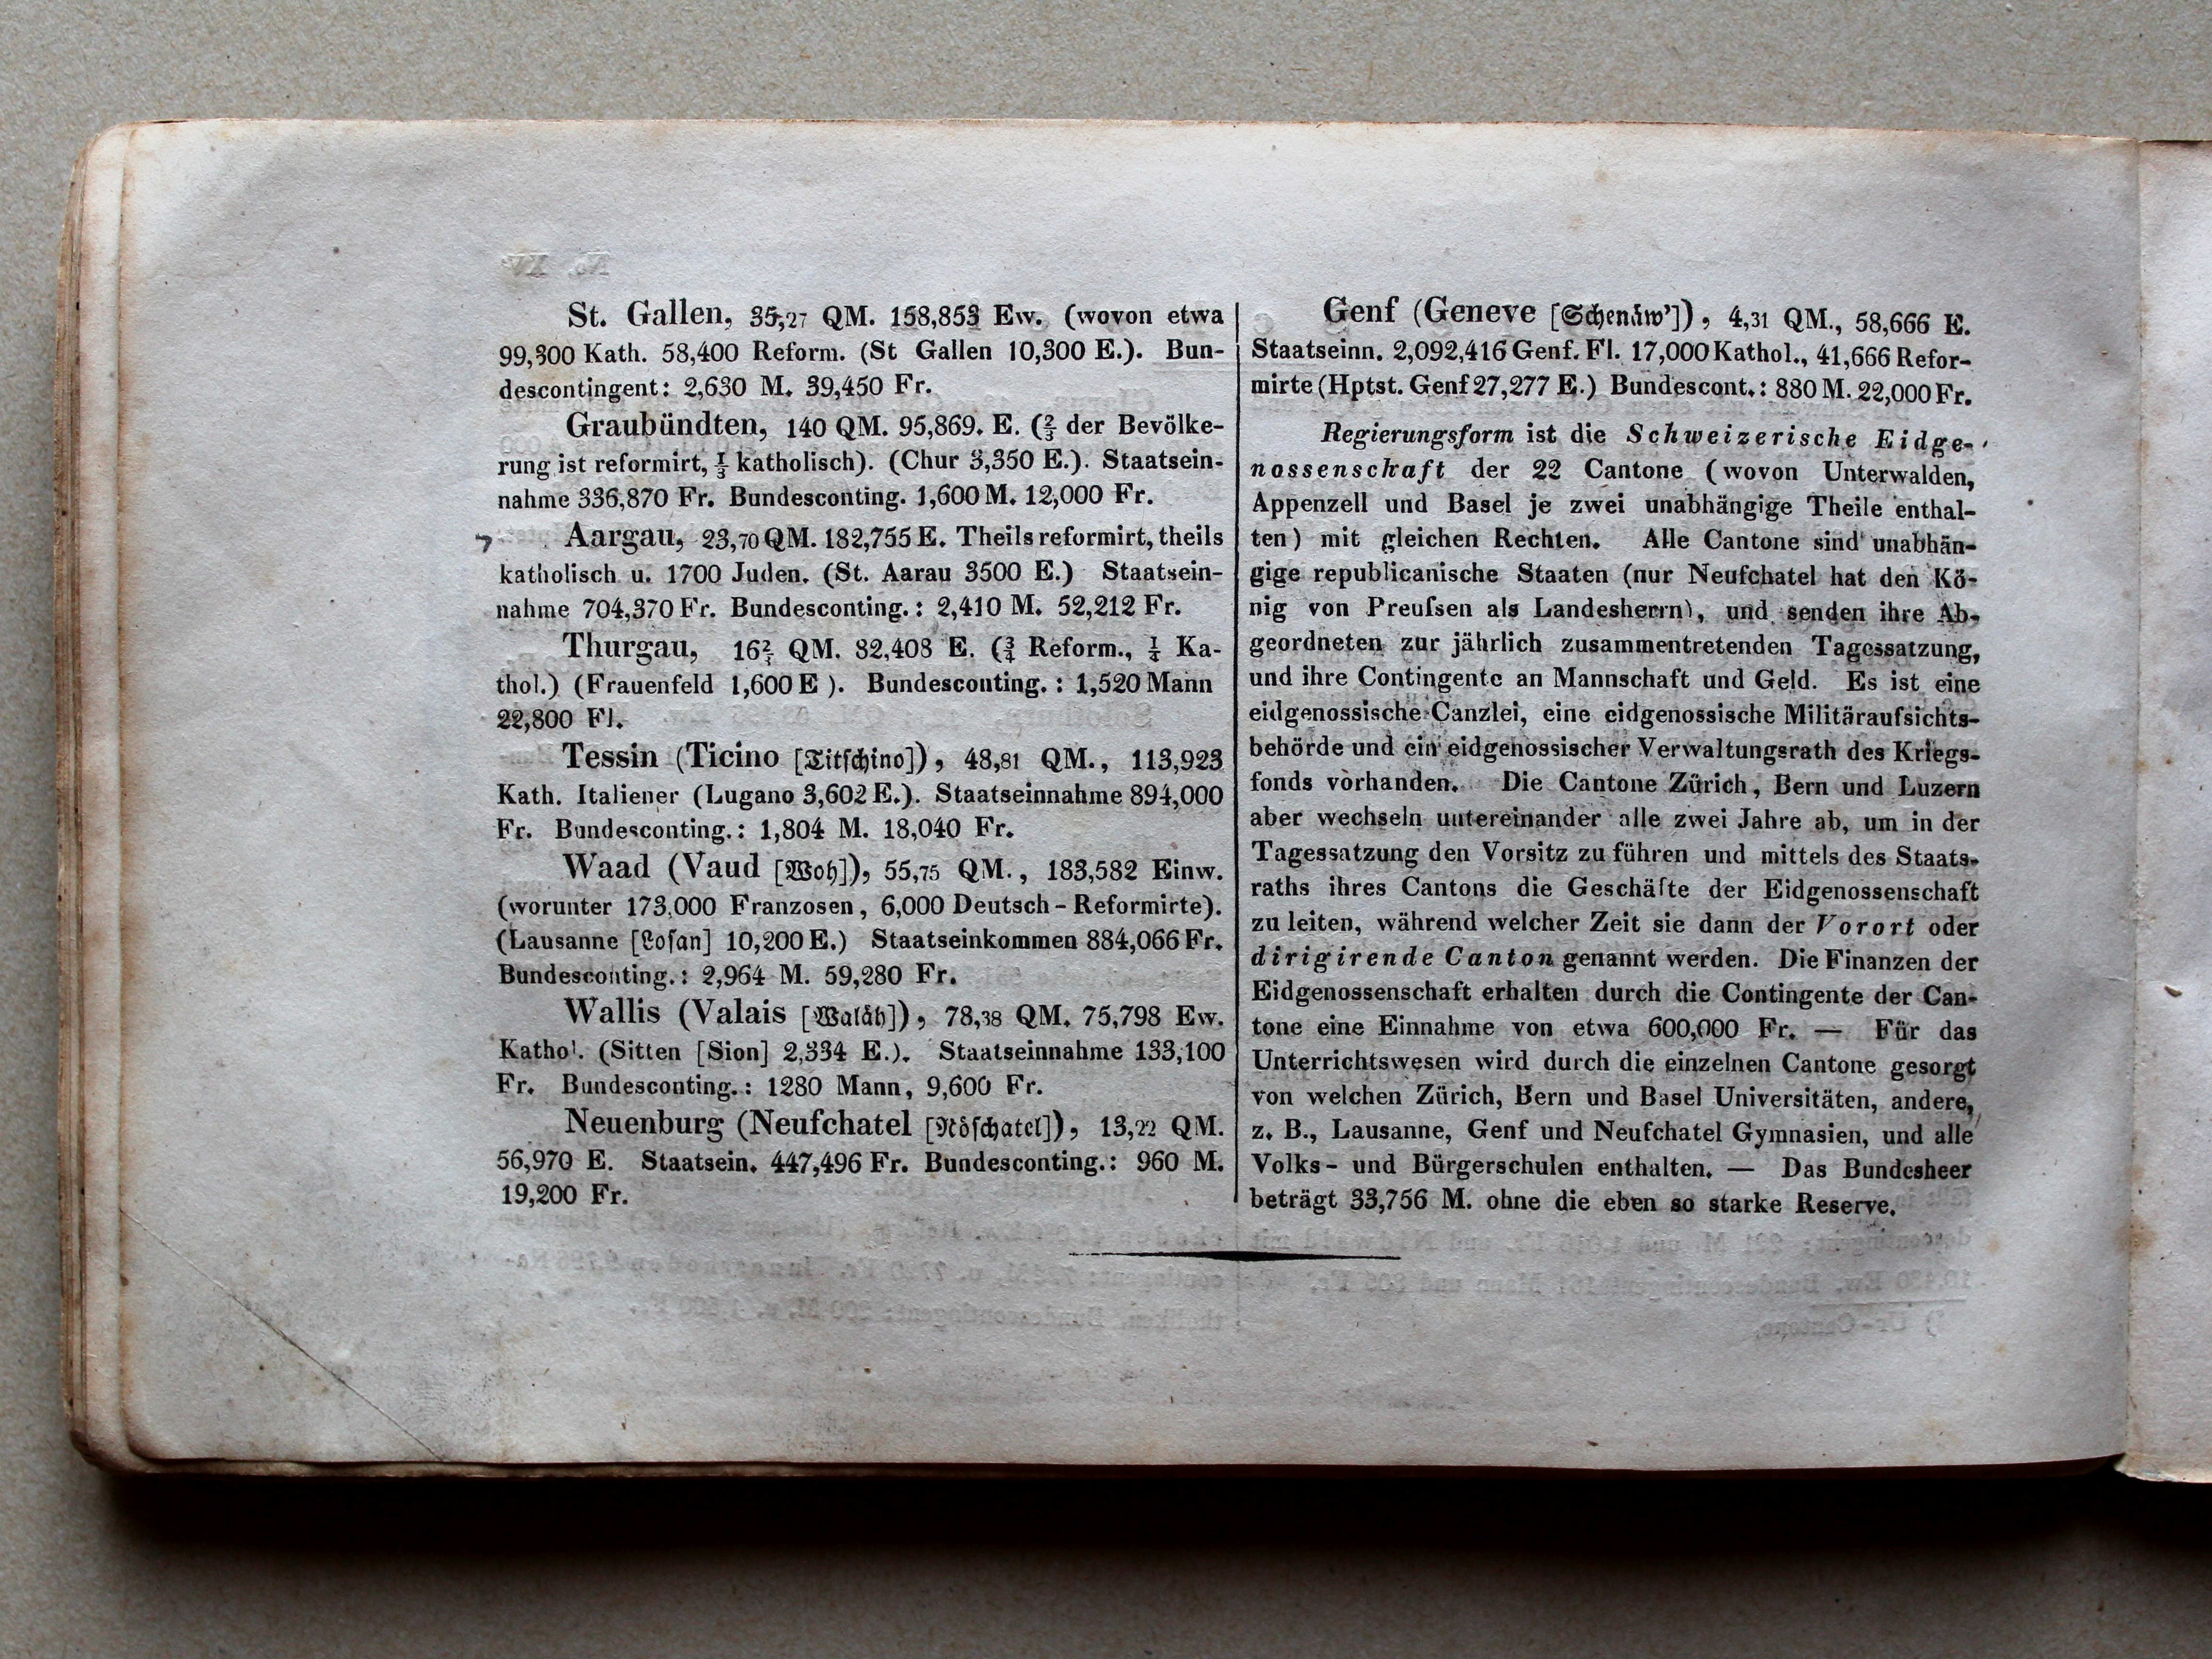 St. Gallen, 35,27 QM. 158,853 Ew. (wovon etwa
99,300 Kath. 58,400 Reform. (St Gallen 10,300 E.). Bun-
descontingent: 2,630 M. 39,450 Fr.
Graubündten, 140 QM. 95,869. E. (⅔ der Bevölke-
rung ist reformirt, ⅓ katholisch). (Chur 3,350 E.). Staatsein-
nahme 336,870 Fr. Bundesconting. 1,600 M. 12,000 Fr.
Aargau, 23,70 QM. 182,755 E. Theils reformirt, theils
katholisch u. 1700 Juden. (St. Aarau 3500 E.) Staatsein-
nahme 704,370 Fr. Bundesconting.: 2,410 M. 52,212 Fr.
Thurgau, QM. 82,408 E. (¾ Reform., ¼ Ka-
thol.) (Frauenfeld 1,600 E ). Bundesconting.: 1,520 Mann
22,800 Fl.
Tessin (Ticino [Titſchino]), 48,81 QM., 113,923
Kath. Italiener (Lugano 3,602 E.). Staatseinnahme 894,000
Fr. Bundesconting.: 1,804 M. 18,040 Fr.
Waad (Vaud [Woh]), 55,75 QM., 183,582 Einw.
(worunter 173,000 Franzosen, 6,000 Deutsch-Reformirte).
(Lausanne [Losan] 10,200 E.) Staatseinkommen 884,066 Fr.
Bundesconting.: 2,964 M. 59,280 Fr.
Wallis (Valais [Waläh]), 78,38 QM. 75,798 Ew.
Kathol. (Sitten [Sion] 2,334 E.). Staatseinnahme 133,100
Fr. Bundesconting.: 1280 Mann, 9,600 Fr.
Neuenburg (Neufchatel [Nöſchatel]), 13,22 QM.
56,970 E. Staatsein. 447,496 Fr. Bundesconting.: 960 M.
19,200 Fr.
Genf (Geneve [Schenäw']), 4,31 QM., 58,666 E.
Staatseinn. 2,092,416 Genf. Fl. 17,000 Kathol., 41,666 Refor-
mirte (Hptst. Genf 27,277 E.) Bundescont.: 880 M. 22,000 Fr.
Regierungsform ist die Schweizerische Eidge-
nossenschaft der 22 Cantone (wovon Unterwalden,
Appenzell und Basel je zwei unabhängige Theile enthal-
ten) mit gleichen Rechten. Alle Cantone sind unabhän-
gige republicanische Staaten (nur Neufchatel hat den Kö-
nig von Preuſsen als Landesherrn), und senden ihre Ab-
geordneten zur jährlich zusammentretenden Tagessatzung,
und ihre Contingente an Mannschaft und Geld. Es ist eine
eidgenossische Canzlei, eine eidgenossische Militäraufsichts-
behörde und ein eidgenossischer Verwaltungsrath des Kriegs-
fonds vorhanden. Die Cantone Zürich, Bern und Luzern
aber wechseln untereinander alle zwei Jahre ab, um in der
Tagessatzung den Vorsitz zu führen und mittels des Staats-
raths ihres Cantons die Geschäfte der Eidgenossenschaft
zu leiten, während welcher Zeit sie dann der Vorort oder
dirigirende Canton genannt werden. Die Finanzen der
Eidgenossenschaft erhalten durch die Contingente der Can-
tone eine Einnahme von etwa 600,000 Fr. — Für das
Unterrichtswesen wird durch die einzelnen Cantone gesorgt
von welchen Zürich, Bern und Basel Universitäten, andere,
z. B., Lausanne, Genf und Neufchatel Gymnasien, und alle
Volks- und Bürgerschulen enthalten. — Das Bundesheer
beträgt 33,756 M. ohne die eben so starke Reserve.